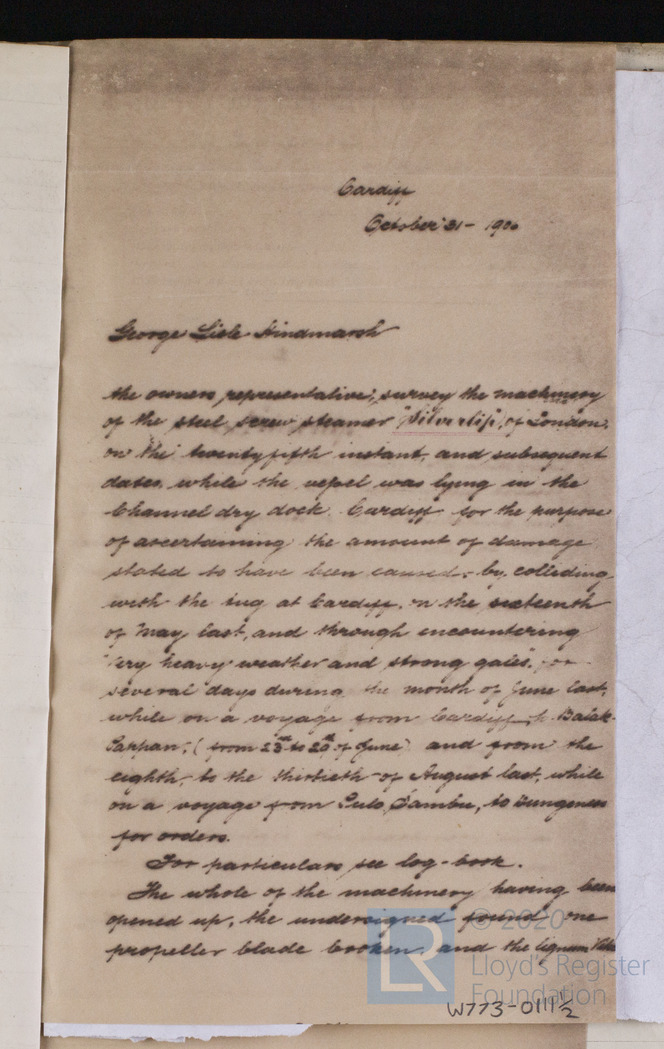 Cardiff
October 31 - 1900
George Lisle Hindmarsh
the owners representative, survey the machinery
of the steel screw steamer "Silverlip", of London,
on the twenty fifth instant, and subsequent
dates, while the vessel was lying in the
Channel dry dock. Cardiff for the purpose
of ascertaining the amount of damage
stated to have been caused, by colliding
with the tug at Cardiff, on the sixteenth
of May last, and through encountering
"very heavy weather and strong gales", for
several days during the month of June last,
while on a voyage from Cardiff to Balak-
Pappan, (from 23rd to 29th of June) and from the
eighth, to the thirtieth of August last, while
on a voyage from Pulo Sambu, to Dungeness
for orders.
For particulars see log-book.
The whole of the machinery having been
opened up, the undersigned found one
propeller blade broken, and the lignum
© 2020
Lloyd's Register
Foundation
LR
W773-0111 1/2